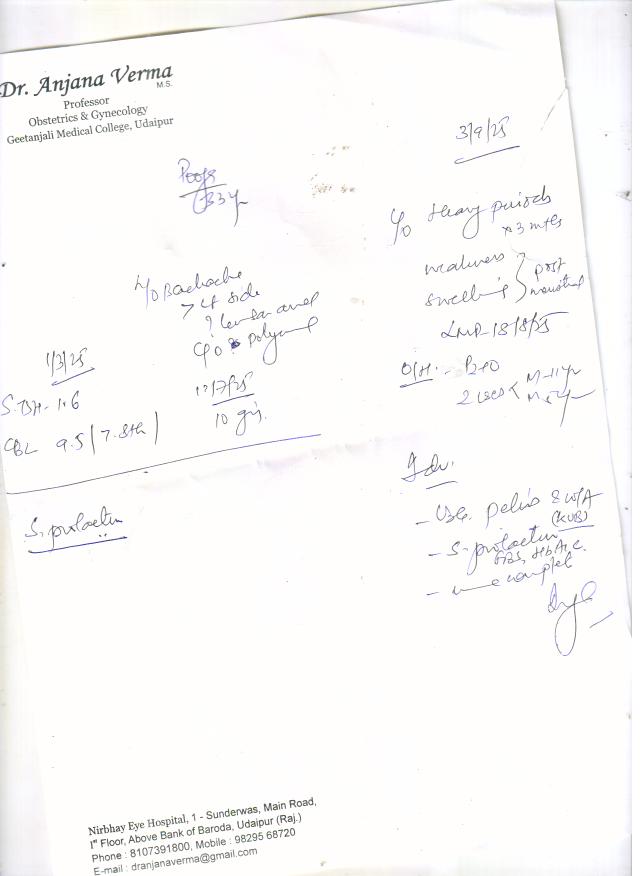 Dr. Anjana Verma
M.S.
Professor
Obstetrics & Gynecology
Geetanjali Medical College, Udaipur
3/9/25
33y
C/o Heavy periods
x 3 mths
weakness
swelling } post menstrual
LMP - 18/8/25
H/O Backache
> Lt side
? lumbar area
C/o
1/3/25
S. TSH - 1.6
9.5 |
17/25
10 gm.
O/H. -
2 LSCS < M - 11yr
Adv.
- USG. pelvis & W/A
(KUB)
- S. prolactin
FBS, HbA1c.
- urine complete
S. prolactin
Nirbhay Eye Hospital, 1 - Sunderwas, Main Road,
Ist Floor, Above Bank of Baroda, Udaipur (Raj.)
Phone : 8107391800, Mobile : 98295 68720
E-mail : dranjanaverma@gmail.com